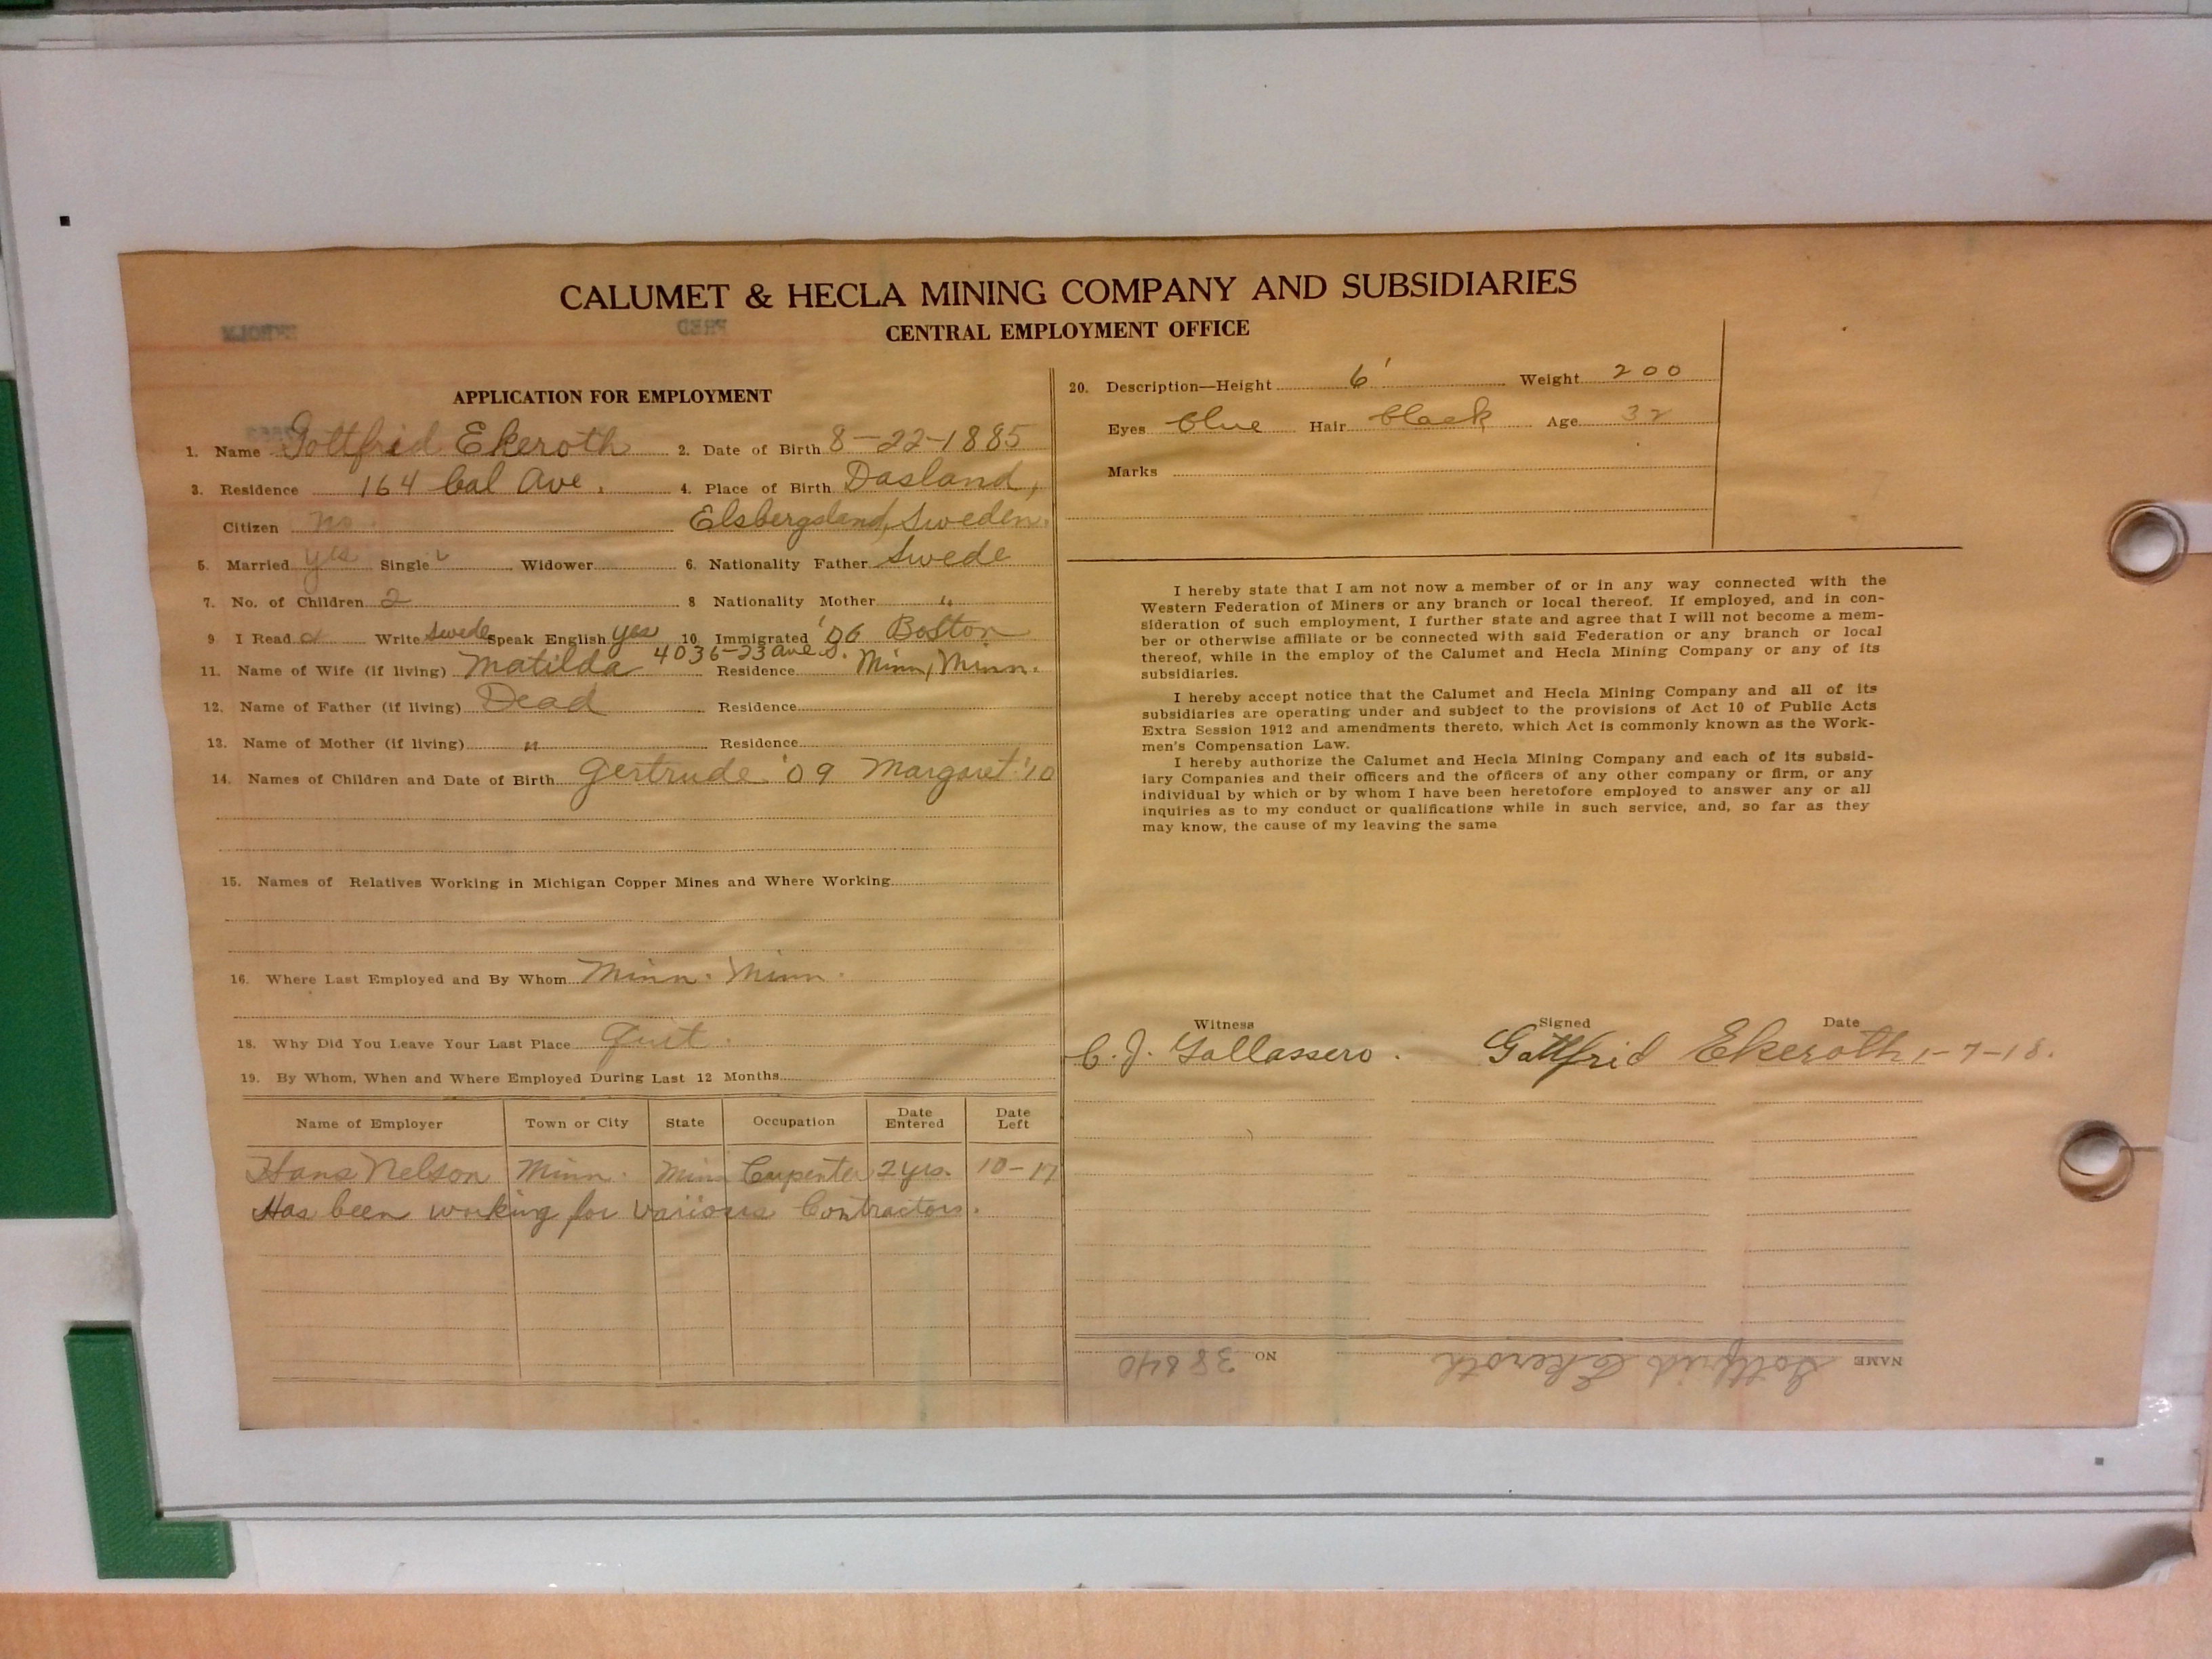 CALUMET & HECLA MINING COMPANY AND SUBSIDIARIES
CENTRAL EMPLOYMENT OFFICE
FRED
APPLICATION FOR EMPLOYMENT
1. Name Gottfrid Ekeroth 2. Date of Birth 8-22-1885
3. Residence 164 Cal Ave. 4. Place of Birth Dasland,
Citizen no. Elsbergsland, Sweden.
5. Married yes Single Widower 6. Nationality Father Swede
7. No. of Children 2 8 Nationality Mother "
9 I Read Write Swede Speak English yes 10. Immigrated '06 Boston
4036-23 Ave S.
11. Name of Wife (if living) Matilda Residence Minn, Minn.
12. Name of Father (if living) Dead Residence
13. Name of Mother (if living) " Residence
14. Names of Children and Date of Birth Gertrude '09 Margaret '10
15. Names of Relatives Working in Michigan Copper Mines and Where Working
16. Where Last Employed and By Whom Minn. Minn.
18. Why Did You Leave Your Last Place Quit.
19. By Whom, When and Where Employed During Last 12 Months
Name of Employer Town or City State Occupation Date Entered Date Left
Hans Nelson Minn. Minn Carpenter 2 yrs. 10-17
Has been working for various Contractors.
20. Description—Height 6' Weight 200
Eyes blue Hair black Age 32
Marks
I hereby state that I am not now a member of or in any way connected with the
Western Federation of Miners or any branch or local thereof. If employed, and in con-
sideration of such employment, I further state and agree that I will not become a mem-
ber or otherwise affiliate or be connected with said Federation or any branch or local
thereof, while in the employ of the Calumet and Hecla Mining Company or any of its
subsidiaries.
I hereby accept notice that the Calumet and Hecla Mining Company and all of its
subsidiaries are operating under and subject to the provisions of Act 10 of Public Acts
Extra Session 1912 and amendments thereto, which Act is commonly known as the Work-
men's Compensation Law.
I hereby authorize the Calumet and Hecla Mining Company and each of its subsid-
iary Companies and their officers and the officers of any other company or firm, or any
individual by which or by whom I have been heretofore employed to answer any or all
inquiries as to my conduct or qualifications while in such service, and, so far as they
may know, the cause of my leaving the same
Witness Signed Date
C. J. Gallassero. Gottfrid Ekeroth 1-7-18.
NAME Gottfrid Ekeroth NO 38840